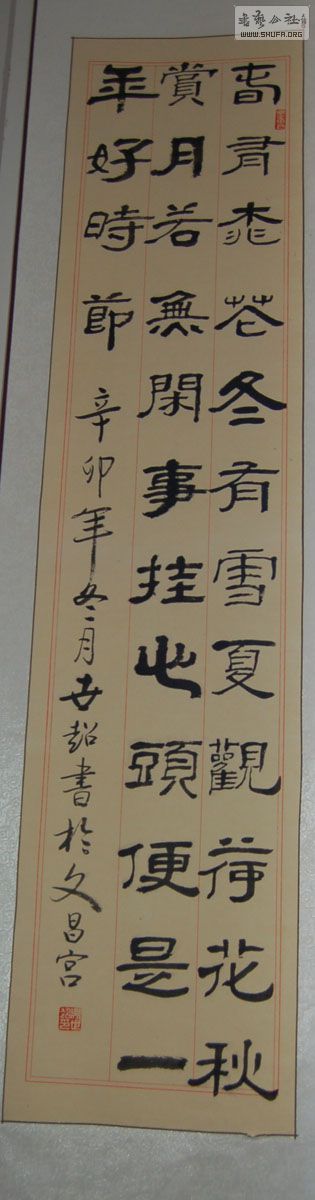 春有桃花冬有雪夏觀荷花秋
賞月若無閑事挂心頭便是一
年好時節
辛卯年冬月世超書於文昌宮
WWW.SHUFA.ORG